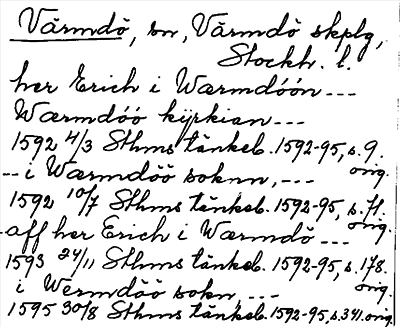 Värmdö, sn, Värmdö skplg,
Stockh. l.
her Erich i Wærmdöön ---
Wærmdöö kyrkian ---
1592 4/3 Sthms tänkeb. 1592-95, s. 9.
orig.
-- i Wærmdöö soknn, ---
1592 10/7 Sthms tänkeb. 1592-95, s. 71.
orig.
-aff her Erich i Wærmdö ---
1593 24/11 Sthms tänkeb. 1592-95, s. 178.
orig.
i Wermdöö sokn, ---
1595 30/8 Sthms tänkeb. 1592-95, s. 341. orig.